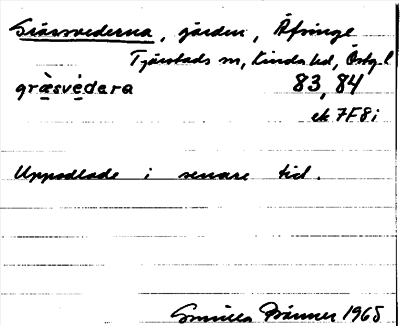 Gräsvederna, gärden, Äsvinge
Tjärstads sn, Kinda hd, Östg l
græ̀své̱dara 83, 84
ek 7F8i
Uppodlade i senare tid.
Gunilla Bränner 1965